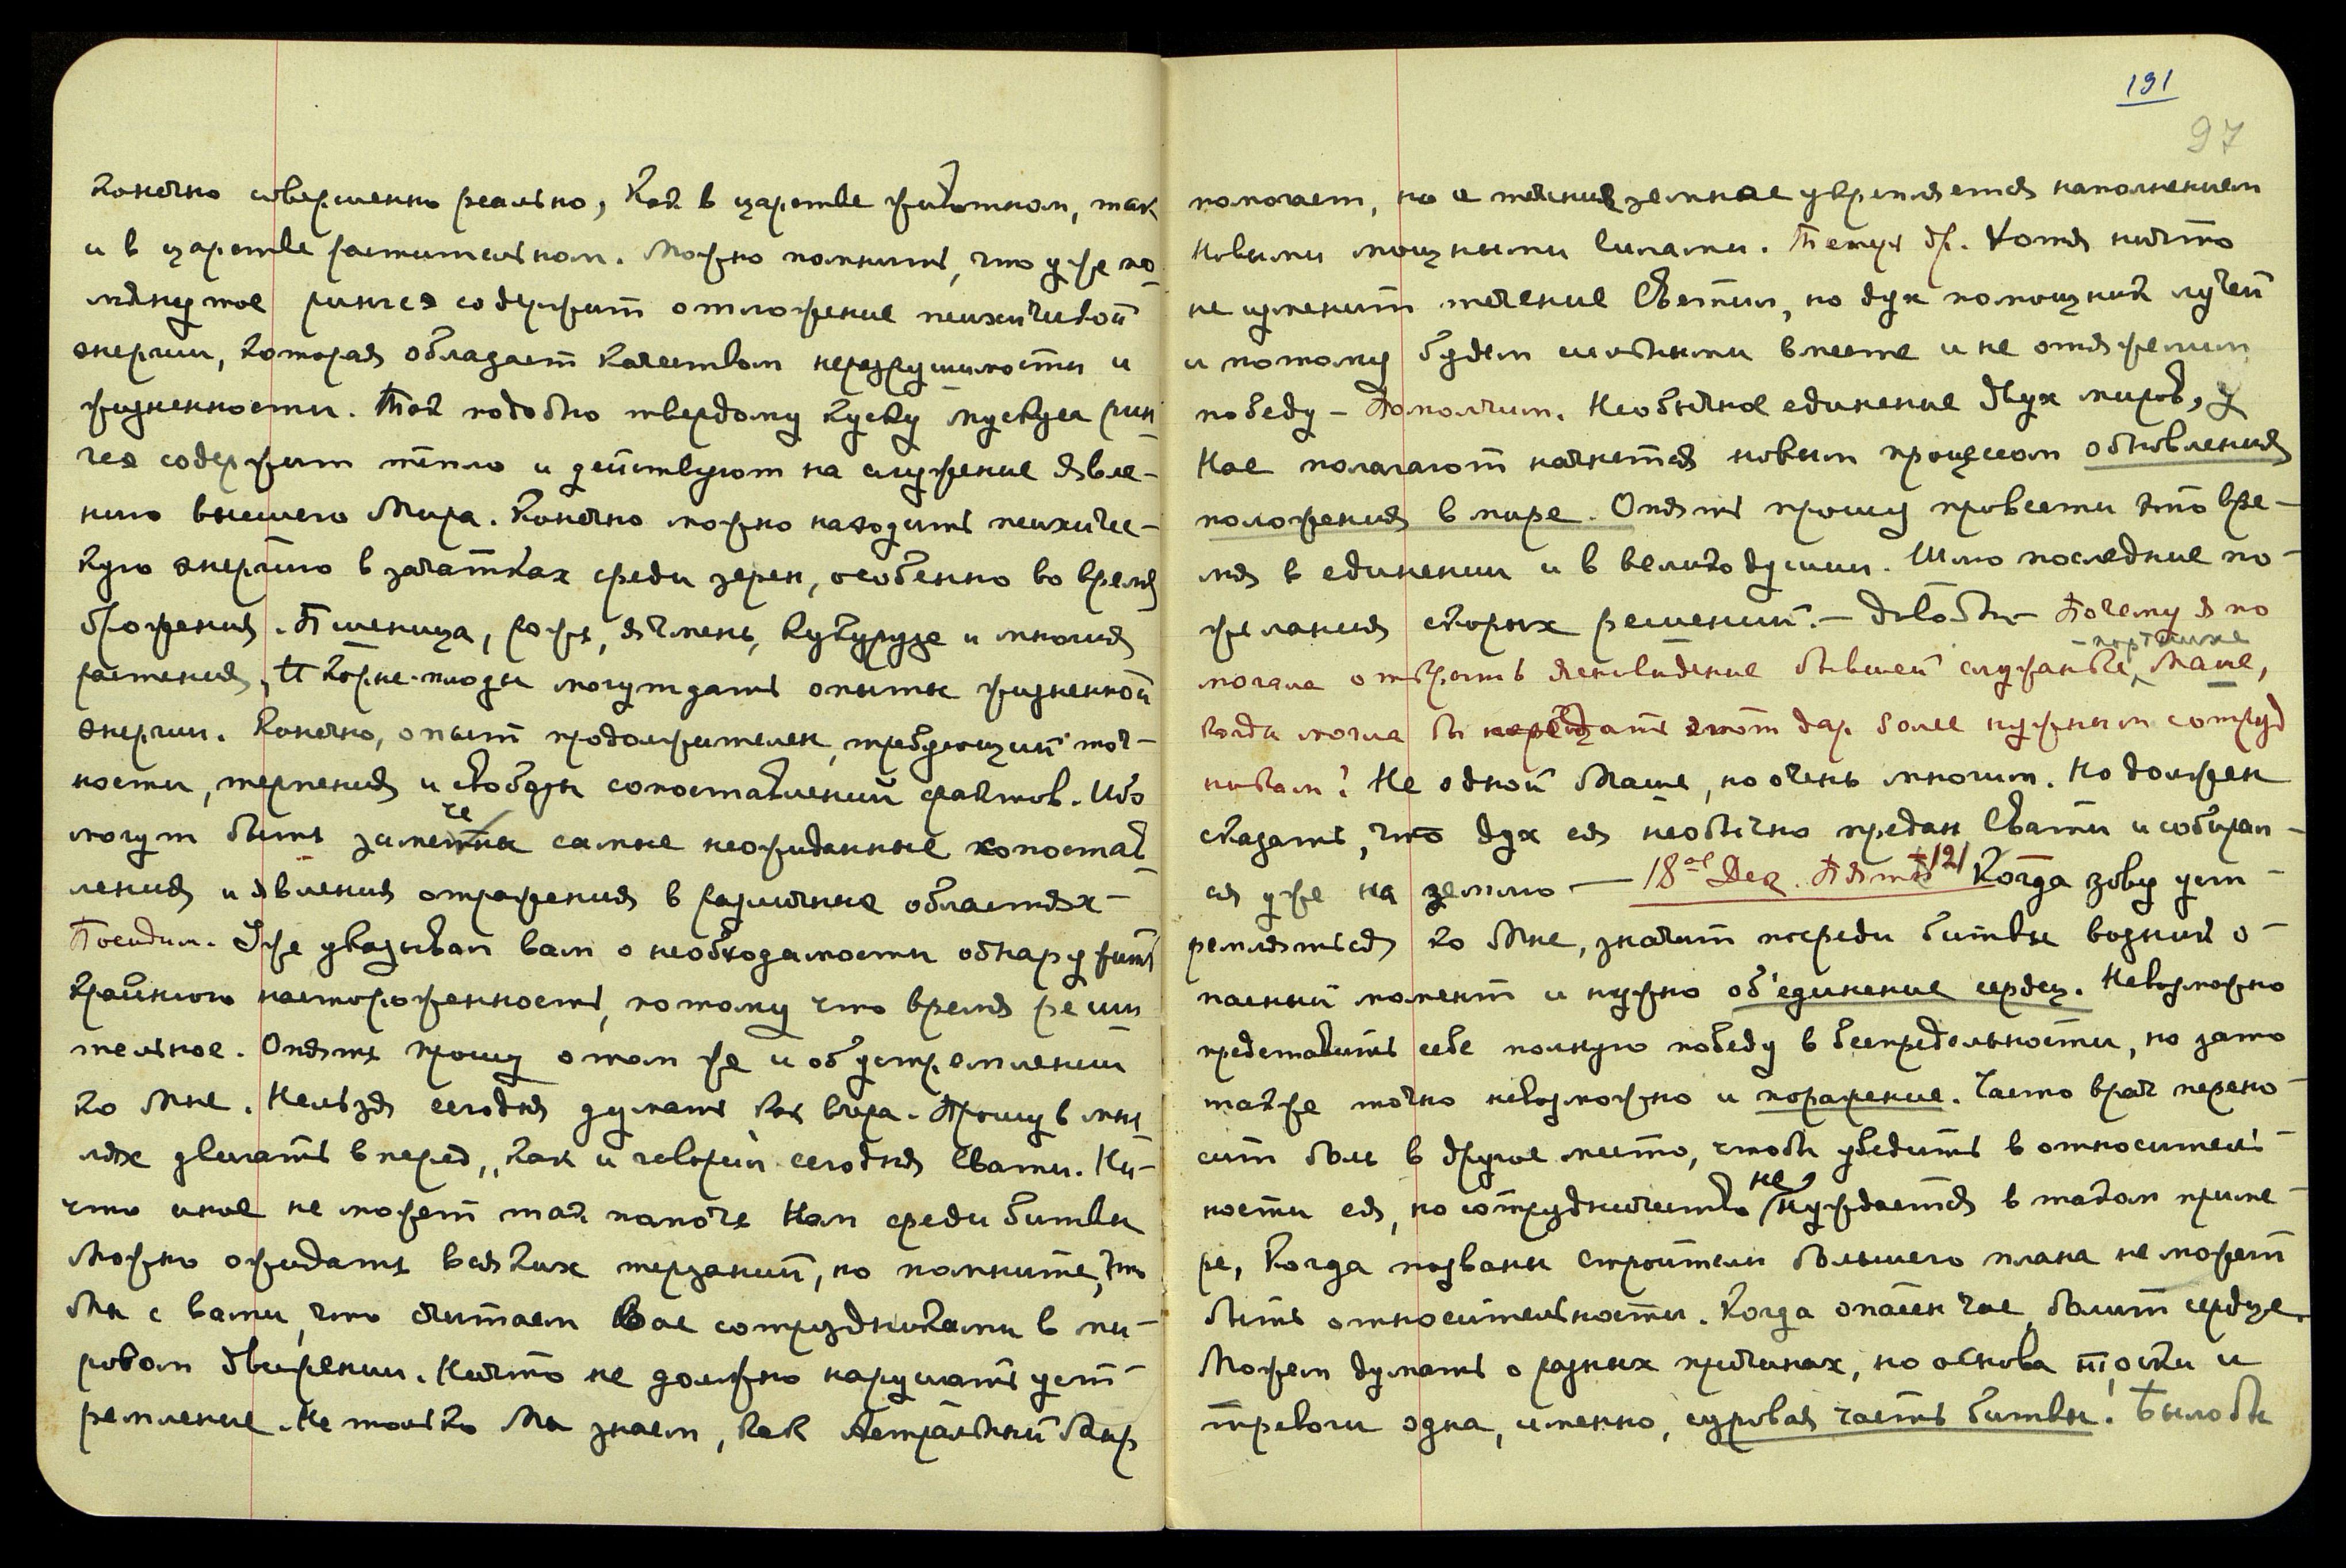 конечно совершенно реально, как в царстве животном, так
и в царстве растительном. Можно помнить, что уже по-
мянутое рингсэ содержит отложение психической
энергии, которая обладает качеством неразрушимости и
жизненности. Так подобно твердому куску мускуса рин-
гсэ содержит тепло и действуют на служение явле-
нию высшего Мира. Конечно можно находить психиче-
кую энергию в зачатках среди зерен, особенно во время
брожения. Пшеница, рожь, ячмень, кукуруза и многия
растения, и корне-плоды могут дать опыты жизненной
энергии. Конечно, опыт продолжителен, требующий точ-
ности, терпения и свободы сопоставлений фактов. Ибо
могут быть замечены самые неожиданные сопостав-
ления и явления отражения в различные областях —
Посидим. Уже указывал вам о необходимости обнаружить
крайнюю настороженность, потому что время реши
тельное. Опять прошу о том же и об устремлении
ко Мне. Нельзя сегодня думать как вчера. Прошу в мыс
лях двигать вперед, как и говорил сегодня Свати. Ни-
что иное не может так помочь Нам среди битвы
Можно ожидать всяких терзаний, но помните, что
Мы с вами, что считаем Вас сотрудниками в ми-
ровом движении. Ничто не должно нарушать уст-
ремление. Не только Мы знаем, как Астральный Мир
191
97
помогает, но и течения земные укрепляется наполнением
новыми мощными силами. Теперь др. Хотя ничто
не изменит течение Светил, но дух помощник лучей
и потому будем сильными вместе и не отяжелим
победу — Помолчим. Необычное единение двух миров, у
Нас полагают начнется новым процессом обновления
положения в мире. Опять прошу провести это вре-
мя в единении и в великодушии. Шлю последние по-
желания скорых решений. — Довольно — Почему я по
- портнихе
могала открыть ясновидение бывшей служанке, Маше,
когда могла бы передать этот дар более нужным сотруд
никам? Не одной Маше, но очень многим. Но должен
сказать, что дух ея необычно предан Свати и собирал-
ся уже на землю — 18ое Дек. Пятн. +121 Когда зову уст-
ремляться ко Мне, значит посреди битвы возник о-
пасный момент и нужно об'единение сердец. Невозможно
представить себе полную победу в беспредельности, но зато
также точно невозможно и поражение. Часто врач перено-
сит боль в другое место, чтобы убедить в относитель-
ности ея, но сотрудничество не нуждается в таком приме-
ре, когда позваны строители большего плана не может
быть относительности. Когда опасен час болит сердце.
Можем думать о разных причинах, но основа тоски и
тревоги одна, именно, суровая часть битвы. Было бы